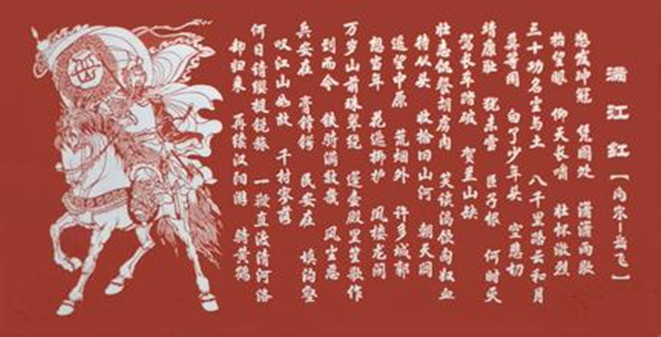 满江红【南宋-岳飞】
怒发冲冠 凭阑处 潇潇雨歇
抬望眼 仰天长啸 壮怀激烈
三十功名尘与土 八千里路云和月
莫等闲 白了少年头 空悲切
靖康耻 犹未雪 臣子恨 何时灭
驾长车踏破 贺兰山缺
壮志饥餐胡虏肉 笑谈渴饮匈奴血
待从头 收拾旧山河 朝天阙
遥望中原 荒烟外 许多城郭
想当年 花遮柳护 凤楼龙阁
万岁山前珠翠绕 蓬壶殿里笙歌作
到而今 铁骑满郊畿 风尘恶
兵安在 膏锋锷 民安在 填沟壑
叹江山如故 千村寥落
何日请缨提锐旅 一鞭直渡清河洛
却归来 再续汉阳游 骑黄鹤